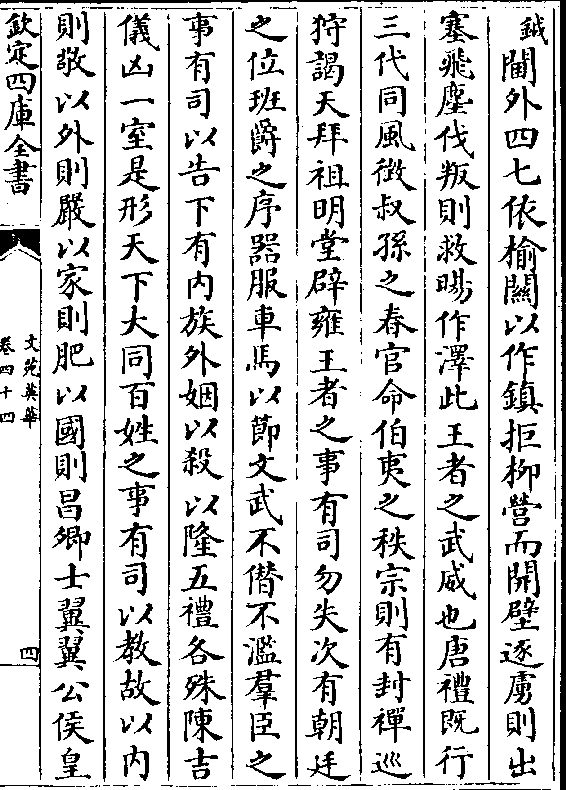 鉞閫外四七依榆關以作鎮拒柳營而開壁逐虜則出
塞飛塵伐叛則救暍作澤此王者之武威也唐禮既行
三代同風徵叔孫之春官命伯夷之秩宗則有封禪巡
狩謁天拜祖明堂辟雍王者之事有司勿失次有朝廷
之位班爵之序器服車馬以節文武不僭不濫羣臣之
事有司以告下有内族外姻以殺以隆五禮各殊陳吉
儀凶一室是形天下大同百姓之事有司以教故以内
則敬以外則嚴以家則肥以國則昌卿士翼翼公侯皇
欽定四庫全書
文苑英華
卷四十四
四